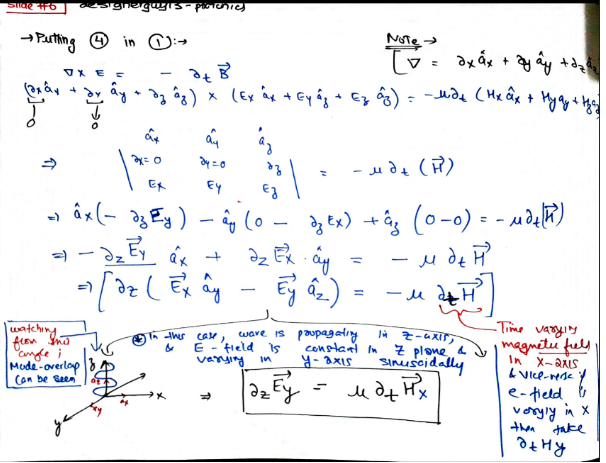 Slide #6 designerguy15-photonics
→ Putting ④ in ①:→
Note →
[∇ = ∂xâx + ∂yây + ∂zâz
∇ x E = - ∂t B⃗
(∂xâx + ∂yây + ∂zâz) × (Exâx + Eyâz + Ezâz) = -μ∂t (Hxâx + Hyay + Hzaz
0 0
âx ây âz
⇒ | ∂x=0 ∂y=0 ∂z | = - μ ∂t (H⃗)
Ex Ey Ez
⇒ âx(- ∂zEy) - ây (0 - ∂zEx) + âz (0-0) = -μ∂t(H⃗)
⇒ - ∂z E⃗y âx + ∂z E⃗x · ây = - μ ∂t H⃗
⇒ [∂z ( E⃗x ây - E⃗y âz ) = - μ ∂t H⃗]
watching
from this
angle ;
Mode-overlap
can be seen
z
az
ay
ax
x
y
* In this case, wave is propagating in z-axis,
& E-field is constant in z plane &
varying in y-axis sinusoidally
⇒ ∂z E⃗y = μ ∂t H⃗x
Time varying
magnetic field
in x-axis
& vice-versa if
e-field is
varying in x
then take
∂t Hy